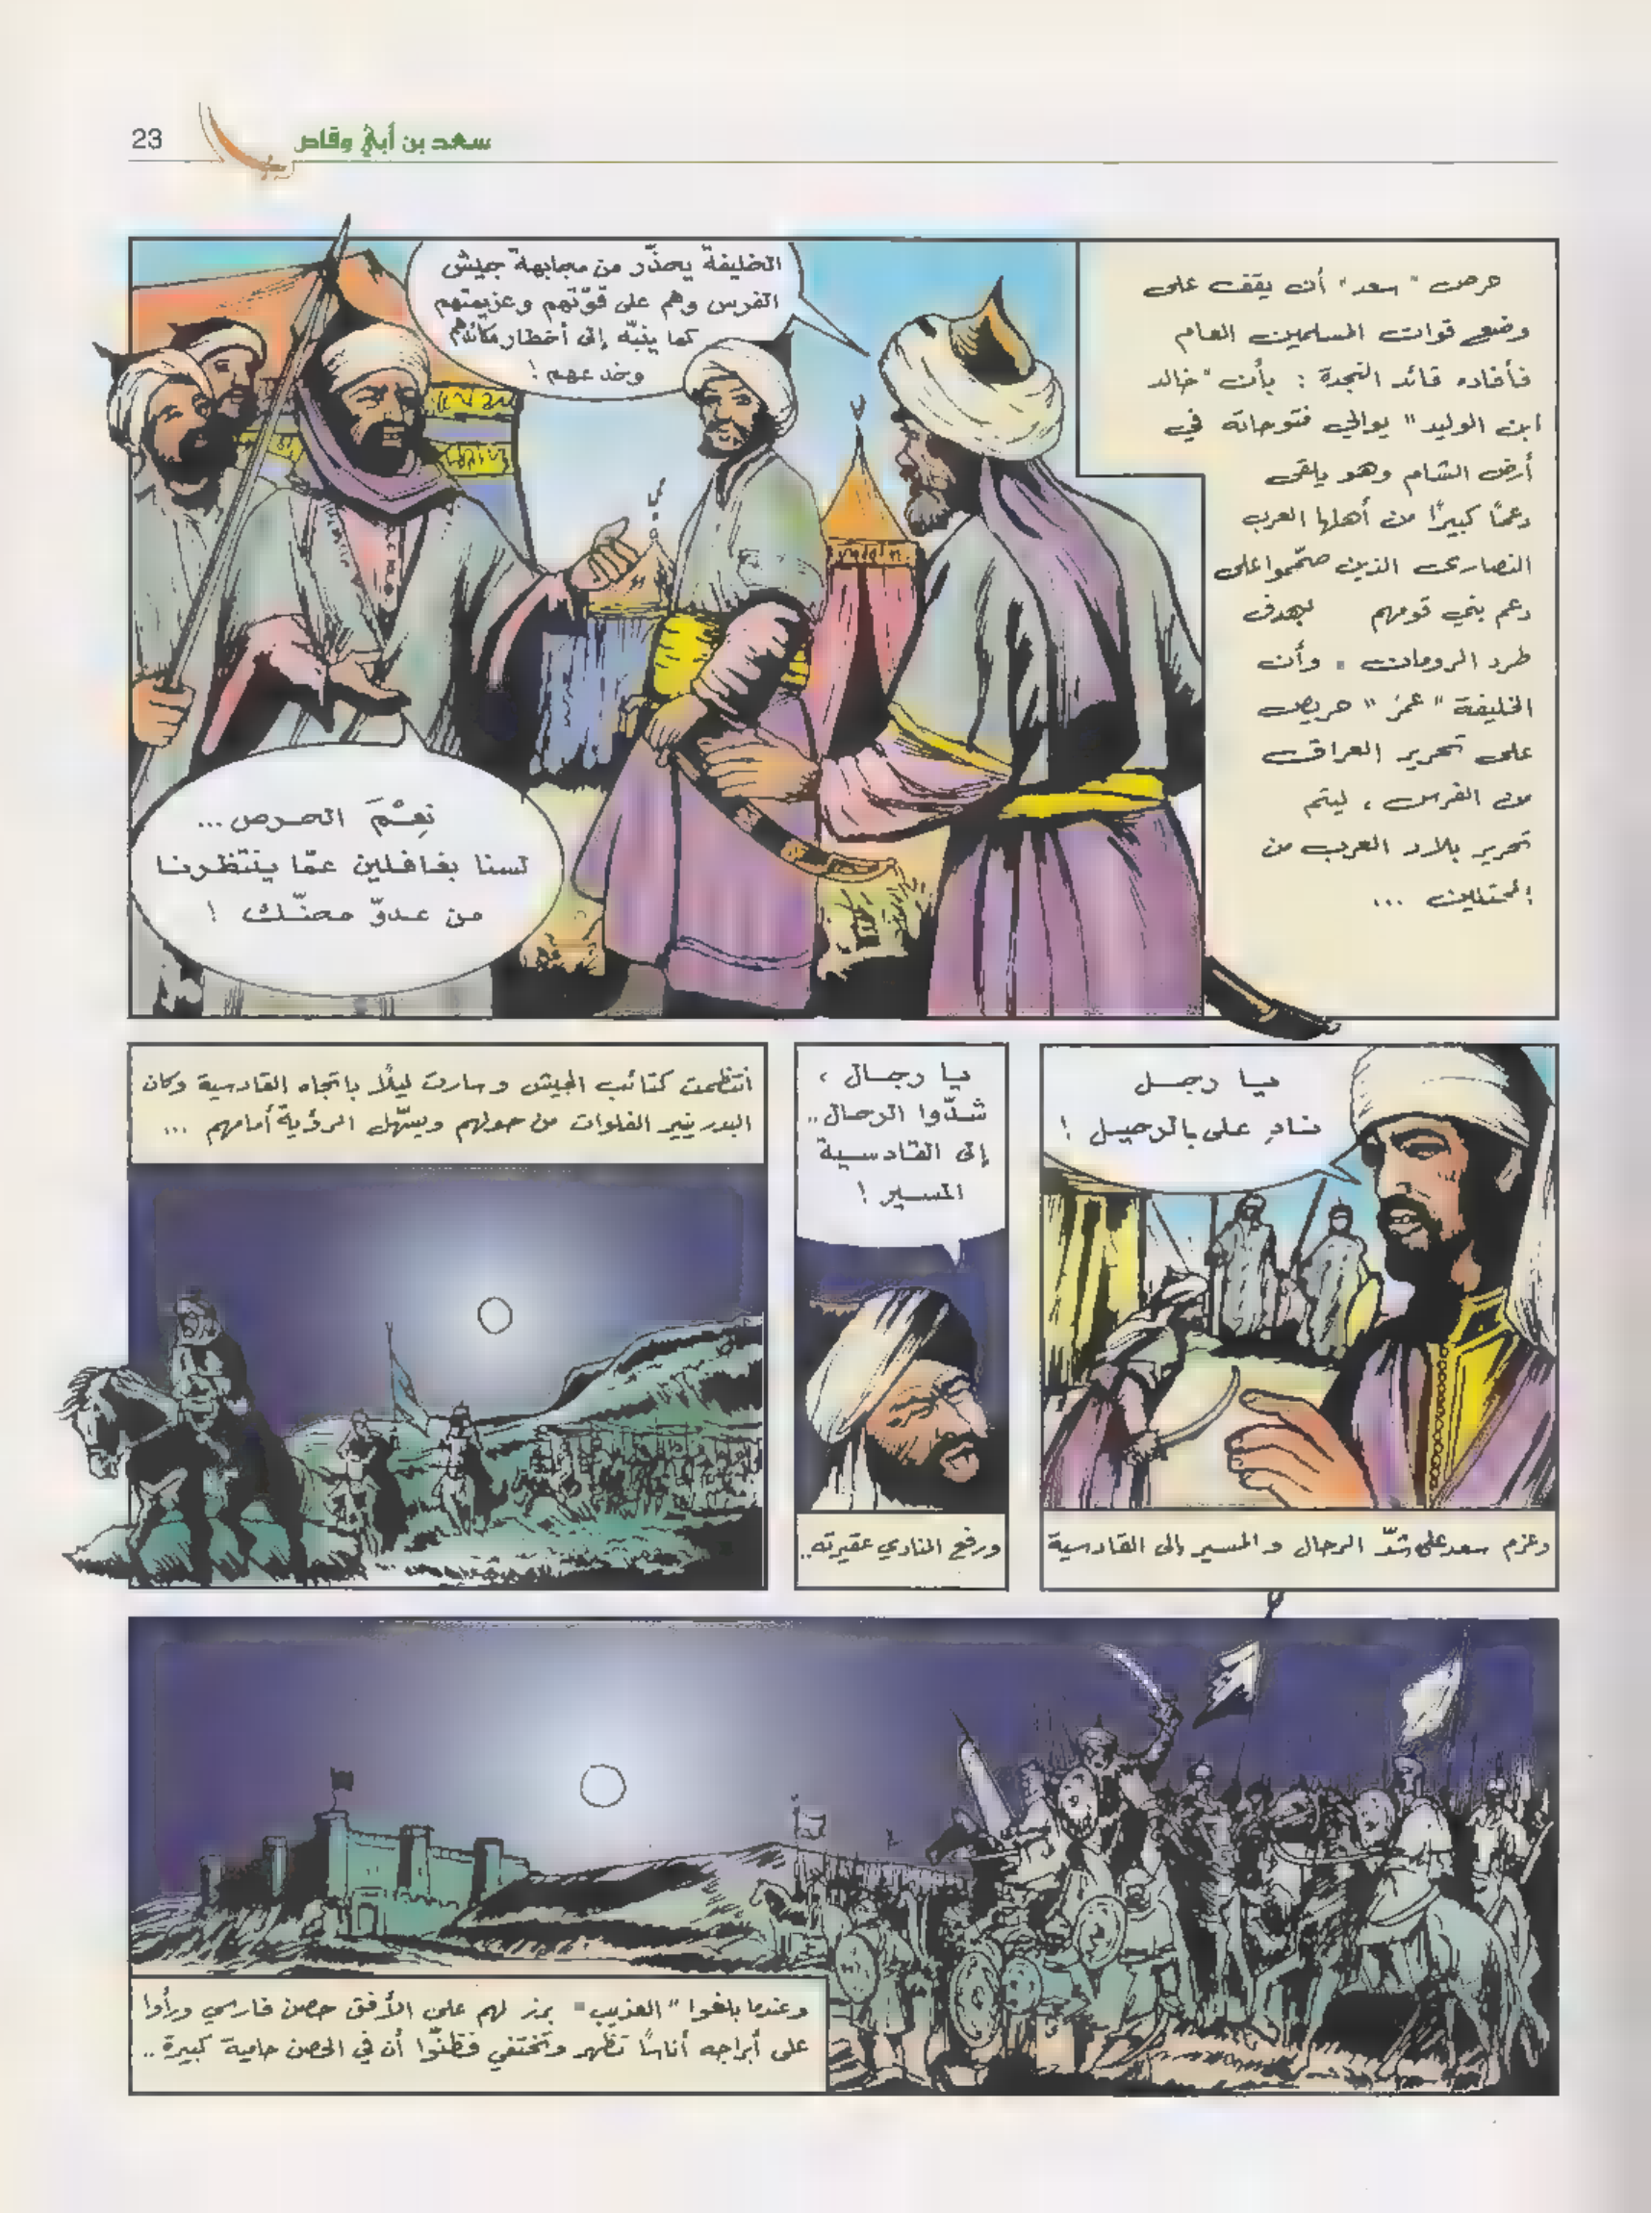 23
سعد بن أبي وقاص
حرص "سعد" أن يقف على
وضع قوات المسلمين العام
فأفاده قائد النجدة : بأن "خالد
ابن الوليد" يوالي فتوحاته في
أرض الشام وهو يلقى
دعمًا كبيرًا من أهلها العرب
النصارى الذين صمّموا على
دعم بني قومهم لهدف
طرد الرومان . وأن
الخليفة "عمر" حريص
على تحرير العراق
من الفرس ، ليتم
تحرير بلاد العرب من
المحتلين ...
الخليفة يحذّر من مجابهة جيش
الفرس وهم على قوّتهم وعزيمتهم
كما ينبّه إلى أخطار مكائدهم
وخدعهم !
نِعْمَ الحرص ...
لسنا بغافلين عمّا ينتظرنا
من عدوّ محنّك !
يا رجل
نادِ على بالرحيل !
وعزم سعد على شدّ الرحال والمسير إلى القادسية
يا رجال ،
شدّوا الرحال ..
إلى القادسية
المسير !
ورفع المنادي عقيرته ..
انتظمت كتائب الجيش وسارت ليلًا باتجاه القادسية وكان
البدر ينير الفلوات من حولهم ويسهّل الرؤية أمامهم ...
وعندما بلغوا "العذيب" برز لهم على الأفق حصن فارسي ورأوا
على أبراجه أناسًا تظهر وتختفي فظنّوا أن في الحصن حامية كبيرة ..